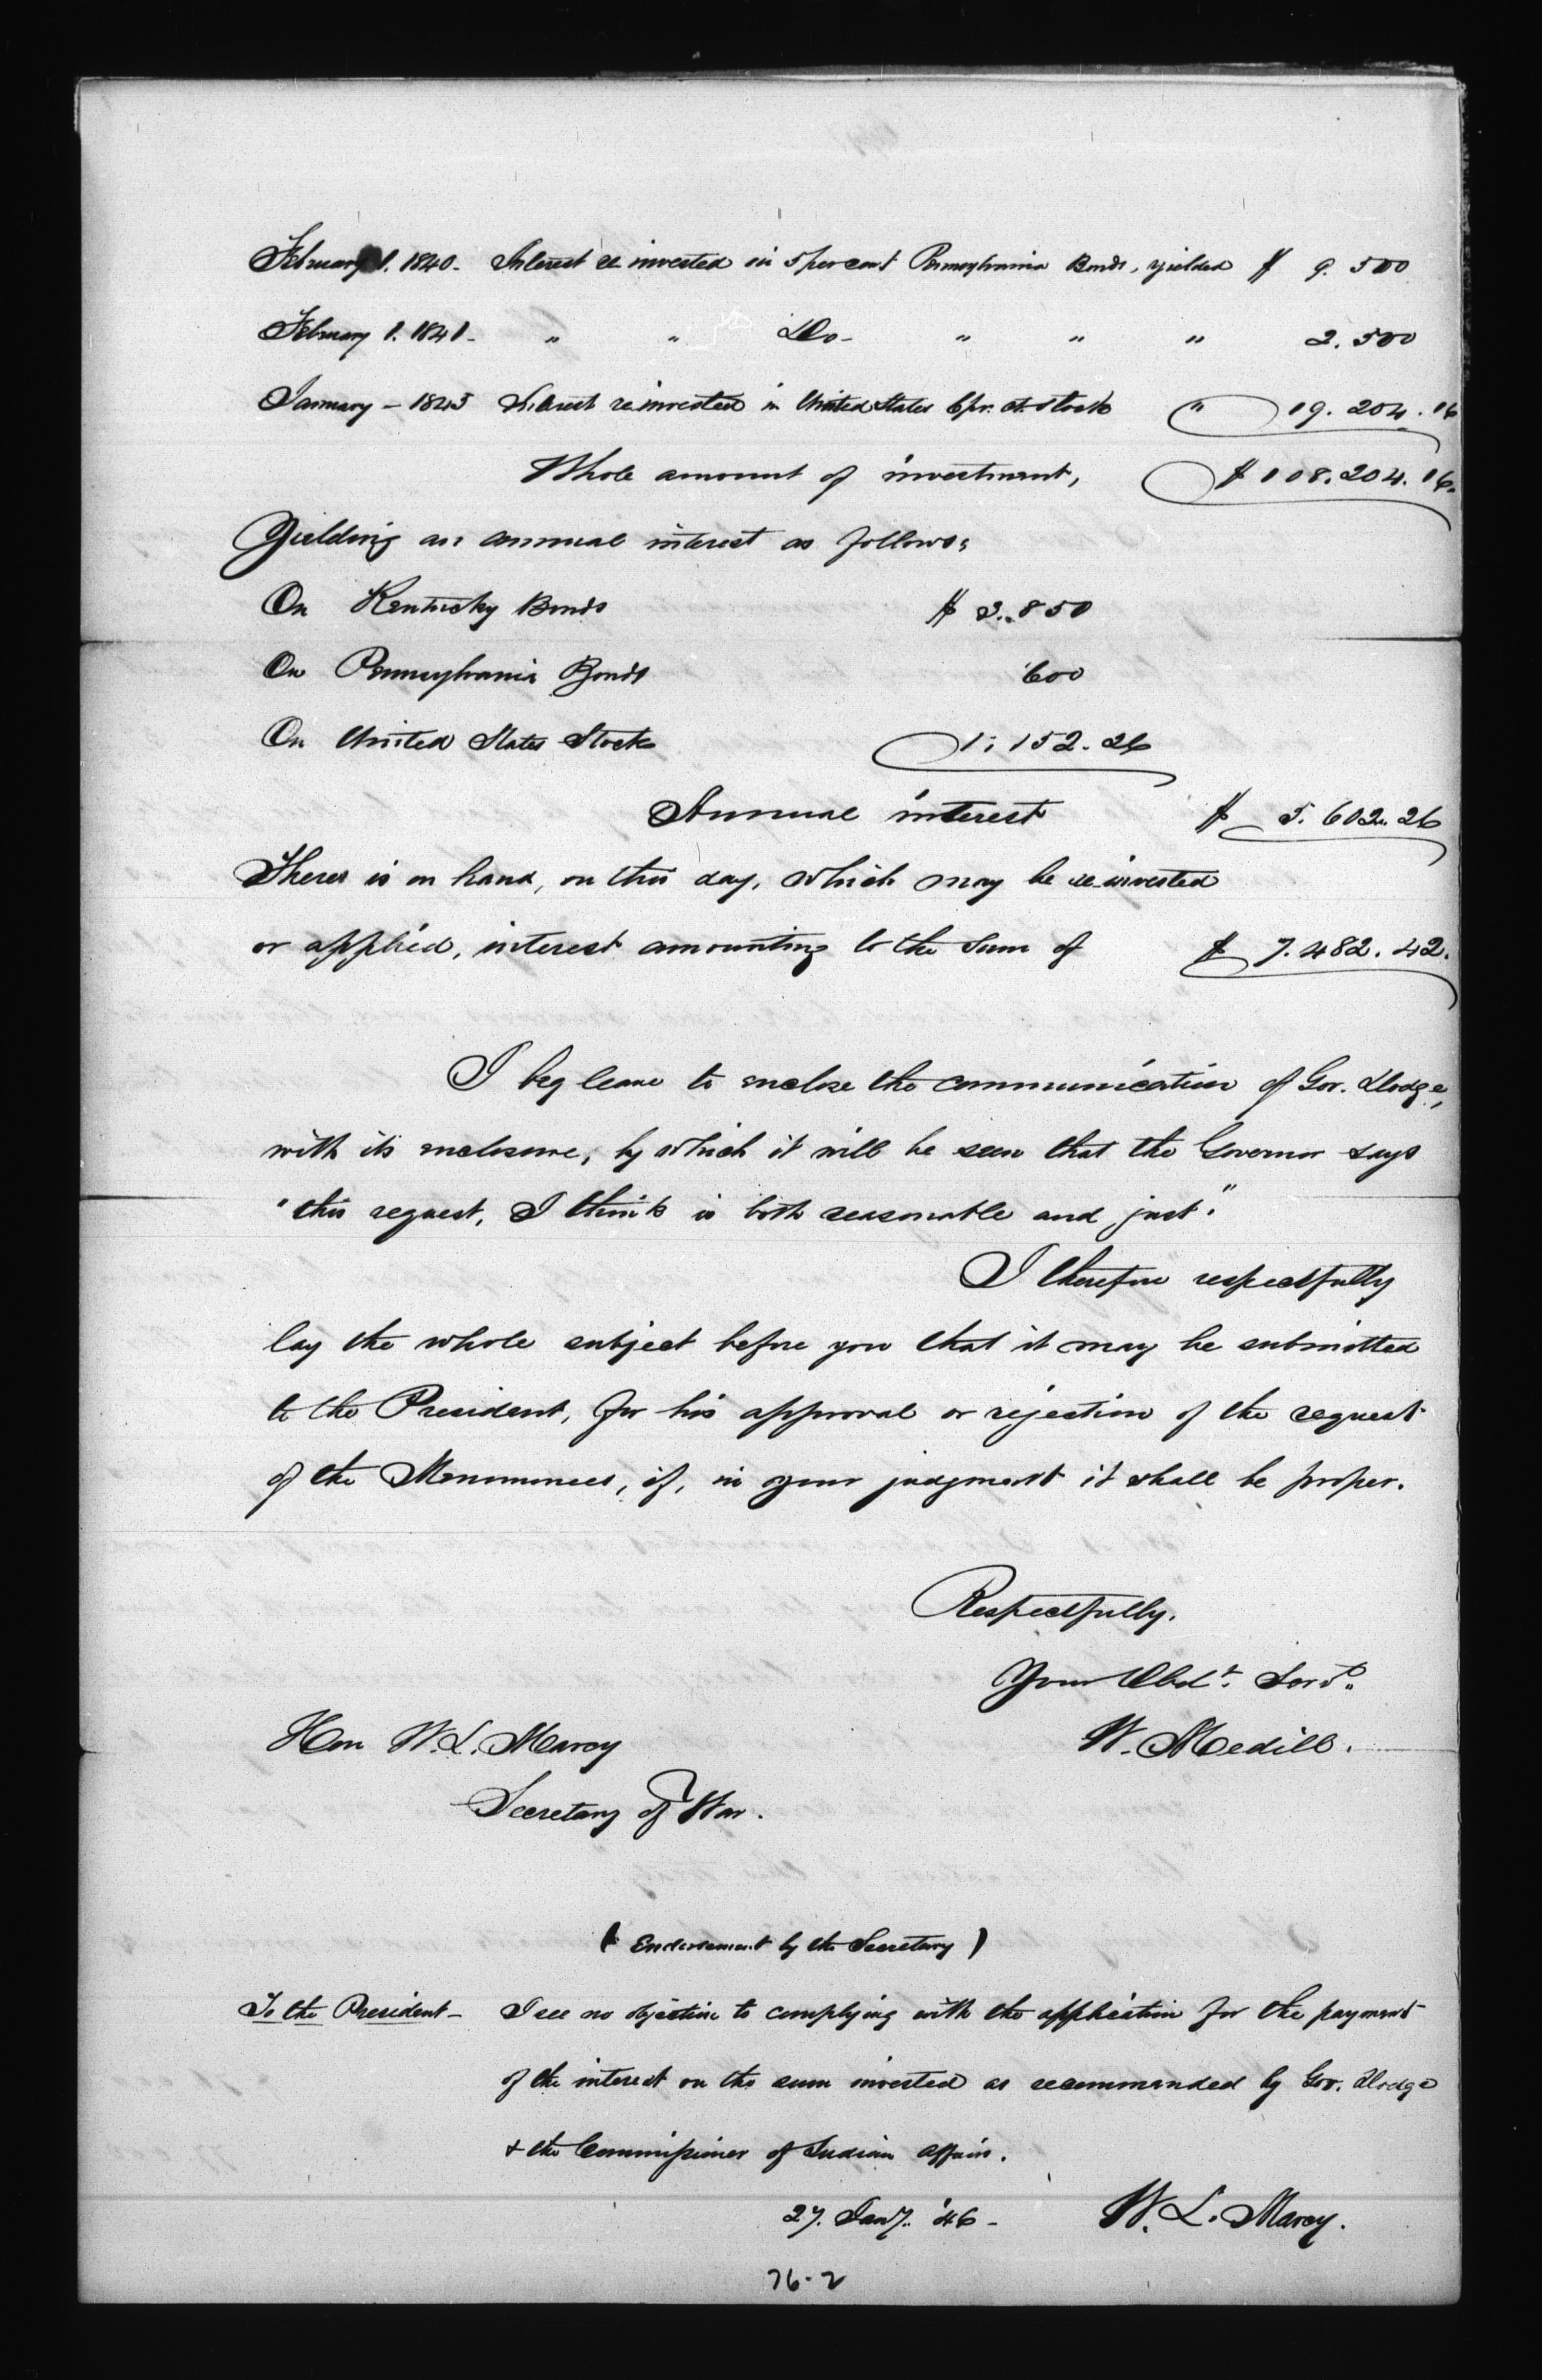 February 1. 1840. Interest re invested in 5 per cent Pennsylvania Bonds, yielded $ 9. 500
February 1. 1841 - " " Do - " " " 2. 500
January - 1843 Interest re invested in United States 6 pr. ct. Stock " 19. 204. 16
Whole amount of investment, $ 108. 204. 16.
Yielding an annual interest as follows:
On Kentucky Bonds $ 3. 850
On Pennsylvania Bonds 600
On United States Stock 1, 152. 26
Annual interest $ 5. 602. 26
There is on hand, on this day, which may be re-invested
or applied, interest amounting to the Sum of $ 7. 482. 42.
I beg leave to enclose the communication of Gov. Dodge,
with its enclosure, by which it will be seen that the Governor says
"this request, I think is both reasonable and just".
I therefore respectfully
lay the whole subject before you that it may be submitted
to the President, for his approval or rejection of the request
of the Menominees, if, in your judgment it shall be proper.
Respectfully.
Your Obdt. Servt.
Hon W. L. Marcy W. Medill.
Secretary of War.
( Endorsement by the Secretary )
To the President - I see no objection to complying with the application for the payment
of the interest on the sum invested as recommended by Gov. Dodge
& the Commissioner of Indian affairs.
27. Jany. '46 - W. L. Marcy.
76-2